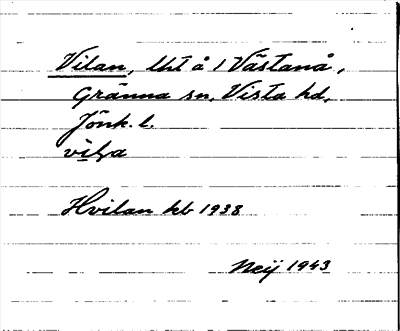 Vilan, lht å 1 Västanå,
Gränna sn, Vista hd,
Jönk. l.
vi̱lạ
Hvilan kb 1938
Neij 1943